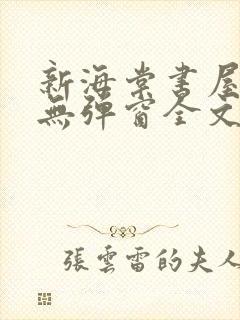 新海棠書屋
無彈窗全文
張雲雷的夫人